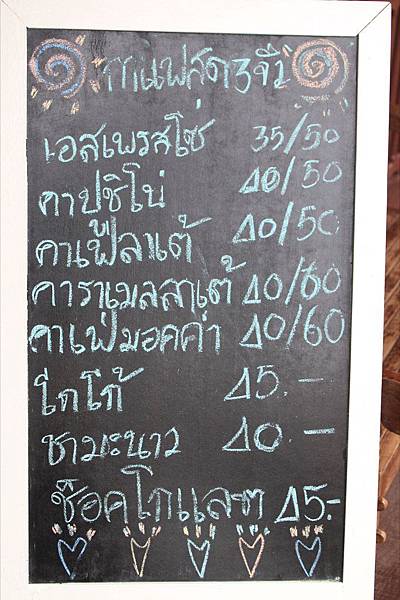 กาแฟสด3จีว
เอสเพรสโซ่ 35/50
คาปูชิโน่ 40/50
คาเฟ่ลาเต้ 40/50
คาราเมลลาเต้ 40/60
คาเฟ่มอคค่า 40/60
โกโก้ 45.-
ชามะนาว 40.-
ช็อคโกแลต 45.-